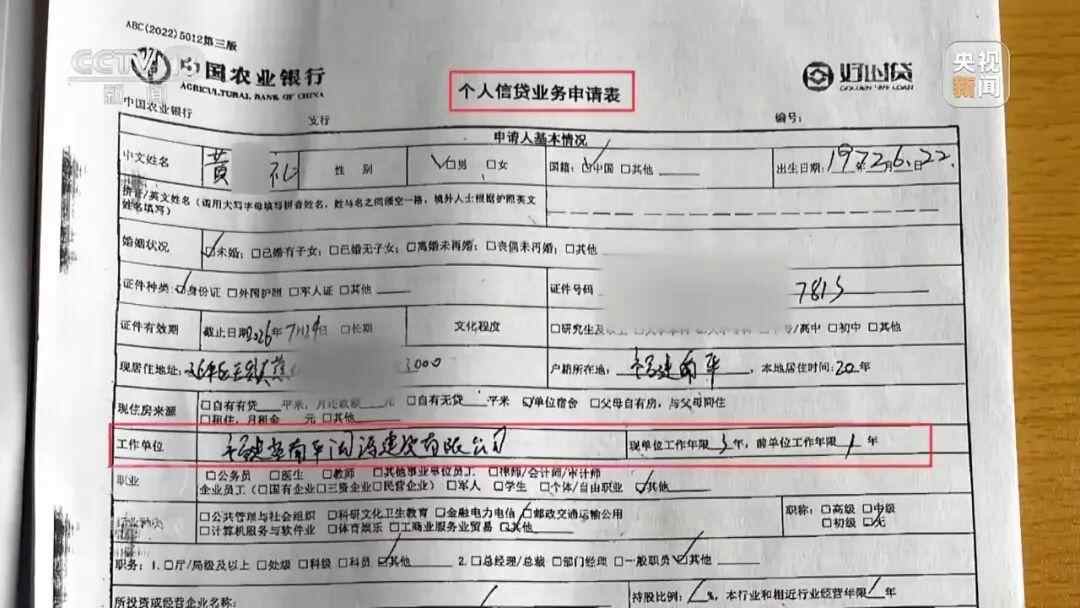 ABC(2022)5012第三版
CCTV 新闻
中国农业银行
AGRICULTURAL BANK OF CHINA
个人信贷业务申请表
好时贷
GOLDEN TIME LOAN
央视新闻
中国农业银行 支行 编号:
申请人基本情况
中文姓名 黄 礼 性 别 ☑男 □女 国籍: ☑中国 □其他 出生日期: 1972年6月22日
拼音/英文姓名(请用大写字母填写拼音姓名, 姓与名之间须空一格, 境外人士根据护照英文
姓名填写)
婚姻状况 ☑未婚; □已婚有子女; □已婚无子女; □离婚未再婚; □丧偶未再婚; □其他
证件种类: ☑身份证 □外国护照 □军人证 □其他 证件号码 7813
证件有效期 截止日期 2026年7月24日 □长期 文化程度 □研究生及 /高中 □初中 □其他
现居住地址: 延平区 000 户籍所在地: 福建南平 本地居住时间: 20年
现住房来源 □自有有贷 平米, 月还款额 元 □自有无贷 平米 ☑单位宿舍 □父母自有房, 与父母同住
□租住, 月租金 元 □其他
工作单位 福建省南平闽 建设有限公司 现单位工作年限 3年, 前单位工作年限 1年
职业 □公务员 □医生 □教师 □其他事业单位员工 □律师/会计师/审计师
企业员工(□国有企业□三资企业□民营企业) □军人 □学生 □个体/自由职业 ☑其他
□公共管理与社会组织 □科研文化卫生教育 □金融电力电信 □邮政交通运输公用 职称: □高级 □中级
□计算机服务与软件业 □体育娱乐 □工商业服务业贸易 ☑其他 □初级 ☑无
职务: 1.□厅/局级及以上 □处级 □科级 □科员 ☑其他 2.□总经理/总裁 □部门经理 □一般职员 ☑其他
所投资或经营企业名称: 持股比例: %, 本行业和相近行业经营年限 年